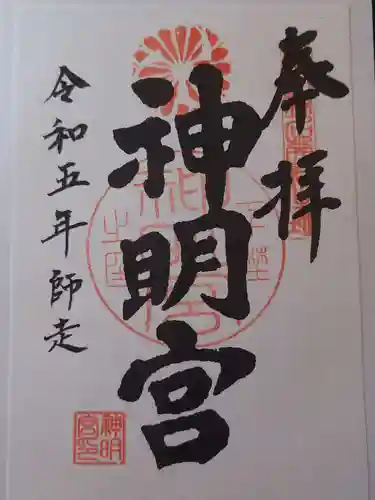 奉拝
神明宮
令和五年師走
神明
宮印